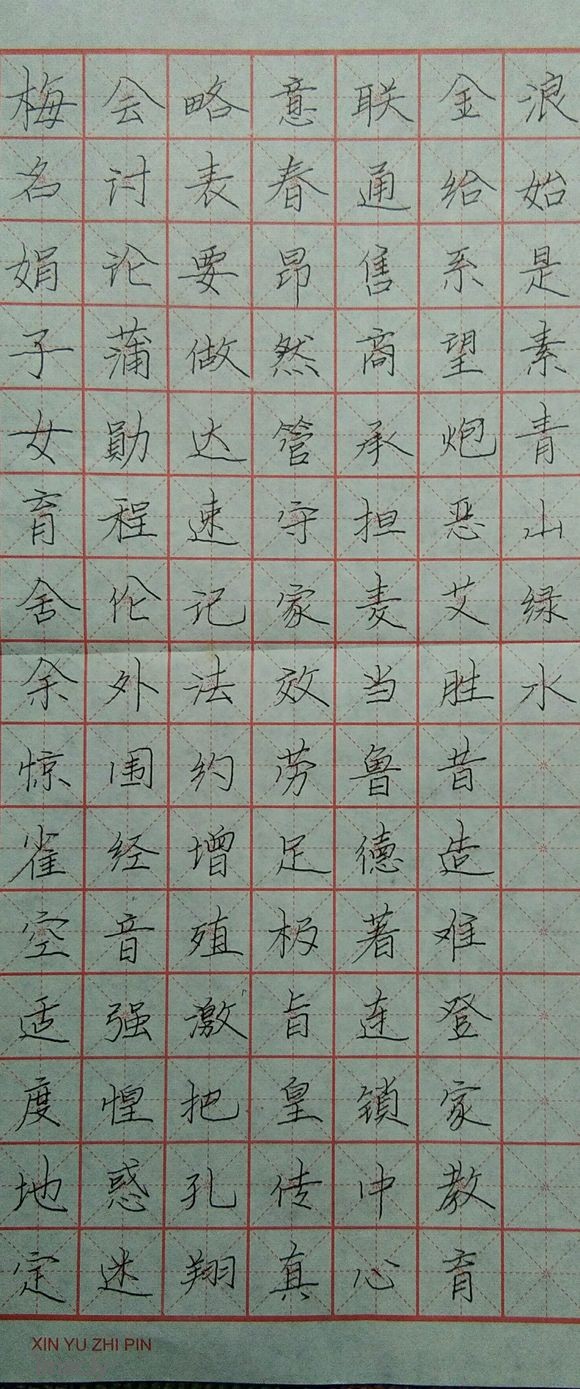 梅名娟子女育舍余惊雀空适度地定
会讨论蒲勛程伦外围经音强惶惑迷
略表要做达速记法约增殖激把孔翔
意春昂然管守家效劳足极旨皇传真
联通售商承担麦当鲁德著连锁中心
金给系望炮恶艾胜昔造难登家教育
浪始是素青山绿水
XIN YU ZHI PIN